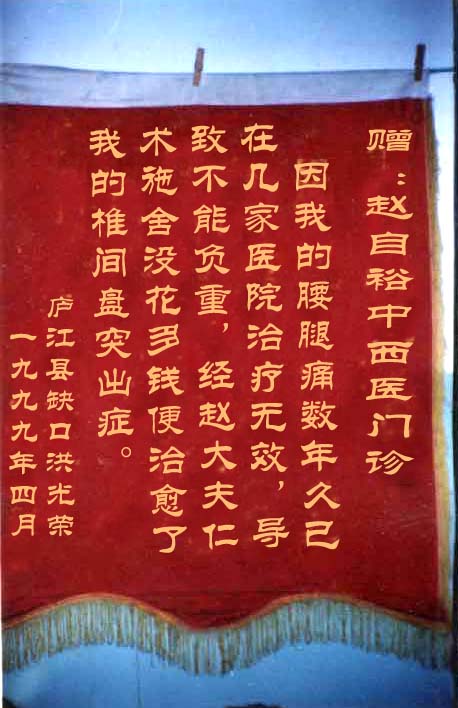 赠：赵自裕中西医门诊
因我的腰腿痛数年久已
在几家医院治疗无效，导
致不能负重，经赵大夫仁
术施舍没花多钱便治愈了
我的椎间盘突出症。
庐江县缺口洪光荣
一九九九年四月